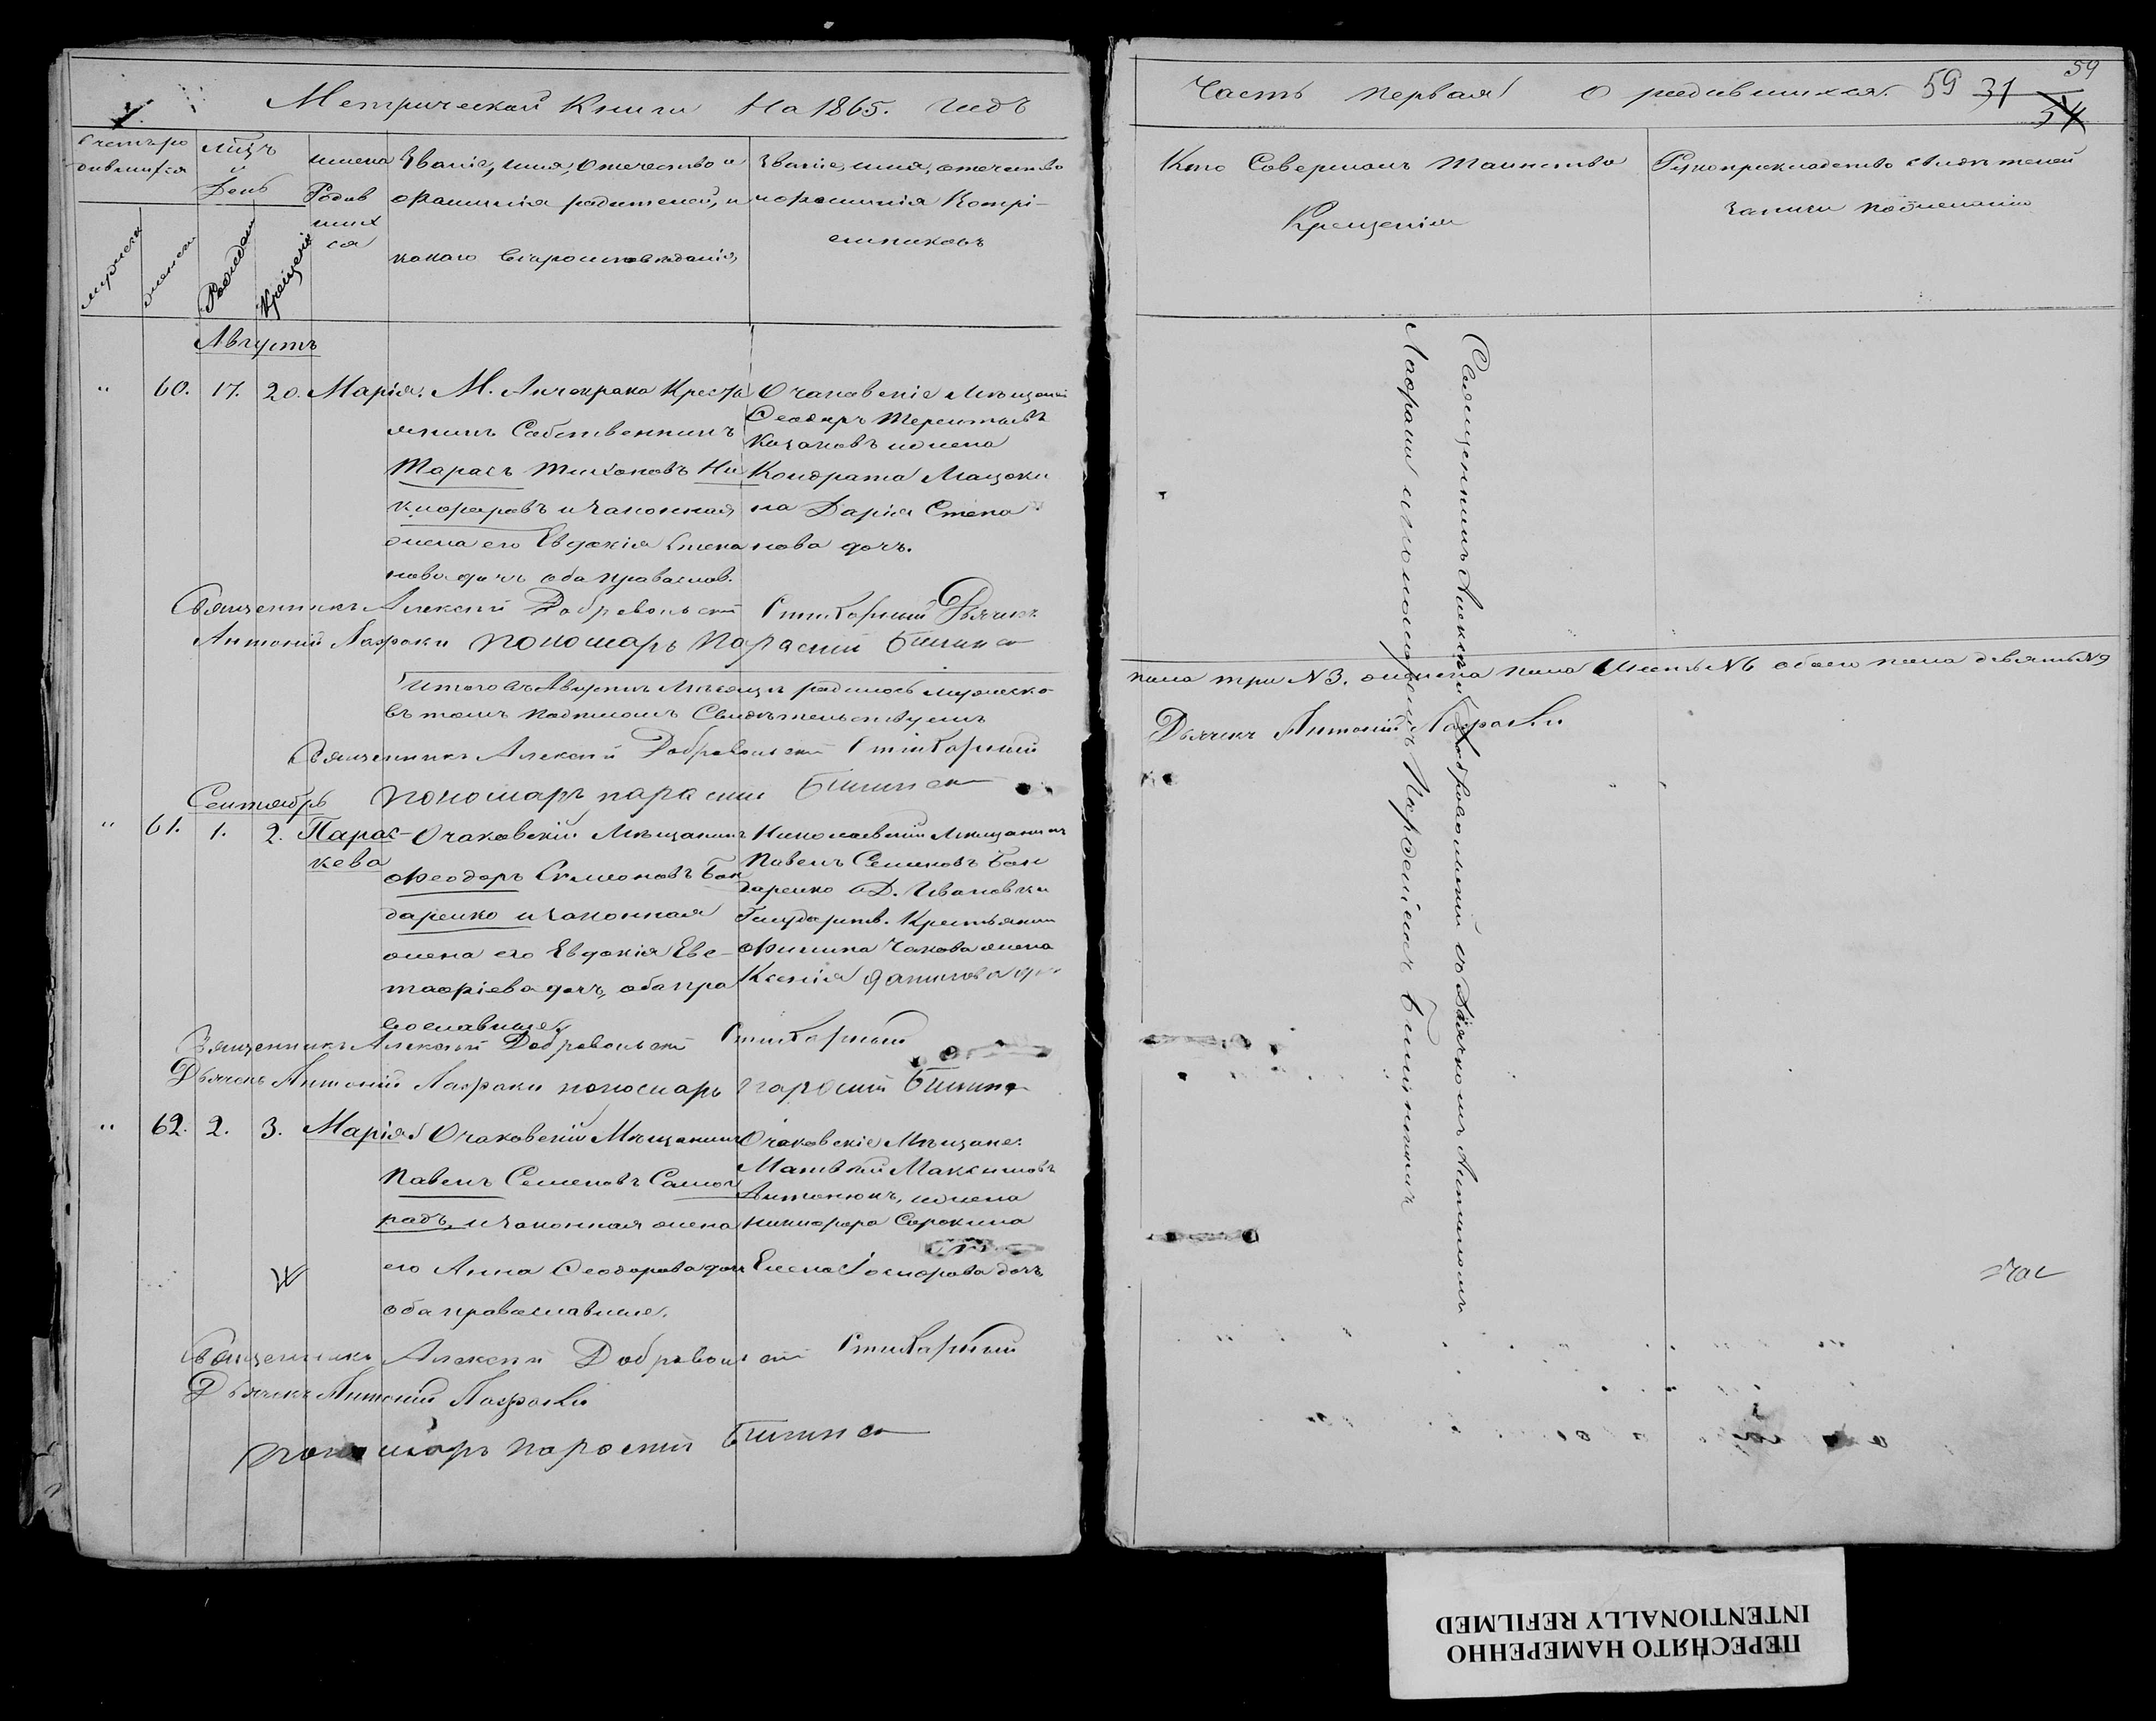 Метрической Книги На 1865. годъ
Счетъ ро
дившихся
мѣсяцъ
и
День
мужеска
женска
Рожденія
Крещенія
имена
Родив
ших
ся
Званіе, имя, Отечество и
Фамилія родителей, и
какого вѣроисповѣданія,
Званіе, имя, отечество
и фамилія Воспрі-
емниковъ
Августъ
" 60. 17. 20. Марія.
М. Анчокрака Крестья
янинъ Собственникъ
Тарасъ Тихоновъ Ни
кифоровъ и законная
жена его Евдокія Степа
нова дочь оба православ.
Очаковскіе Мѣщане
Ѳеодоръ Терентьевъ
Казаковъ и жена
Кондрата
на Дарія Степа
нова дочь.
Священникъ Алексій Добровольскій Стихарный Дьячекъ
Антоній Лафаки пономарь
Итого въ Августѣ Мѣсяцѣ родилось мужеска
въ томъ подписомъ Свидѣтельствуемъ
Священникъ Алексій Добровольскій Стихарный
пономарь
Сентябрь
" 61. 1. 2. Парас-
кева
Очаковскій Мѣщанинъ
Феодоръ Симеоновъ Бон
даренко и законная
жена его Евдокія Евс-
тафіева дочь, оба пра
вославные
Николаевскій Мѣщанинъ
Павелъ Семеновъ Бон
даренко и Д. Ивановки
Государств. Крестьянин
Филипа Чакова жена
Ксенія Данилова доч
Священникъ Алексій Добровольскій Стихарный
Дьячекъ Антоній Лафаки пономарь
" 62. 2. 3. Марія
Очаковскій Мѣщанинъ
Павелъ Семеновъ Самог
радъ, и законная жена
его Анна Ѳеодорова дочь
оба православные.
Очаковскіе Мѣщане:
Матвѣй Максимовъ
Антонюкъ, и жена
Никифора Сорокина
Елена дочь
Священникъ Алексій Добровольскій Стихарный
Дьячекъ Антоній Лафаки
пономарь
Часть первая О родившихся. 59 31
59
54
Кто Совершалъ Таинство
Крещенія
Рукоприкладство свидѣтелей
записи по желанію
Священникъ Алексій Добровольскій съ Дьячкомъ Антоніемъ
Лафаки и пономаремъ
пола три №3. женска пола Шесть №6 обоего пола девять №9
Дьячекъ Антоній Лафаки
ПЕРЕСНЯТО НАМЕРЕННО
INTENTIONALLY REFILMED